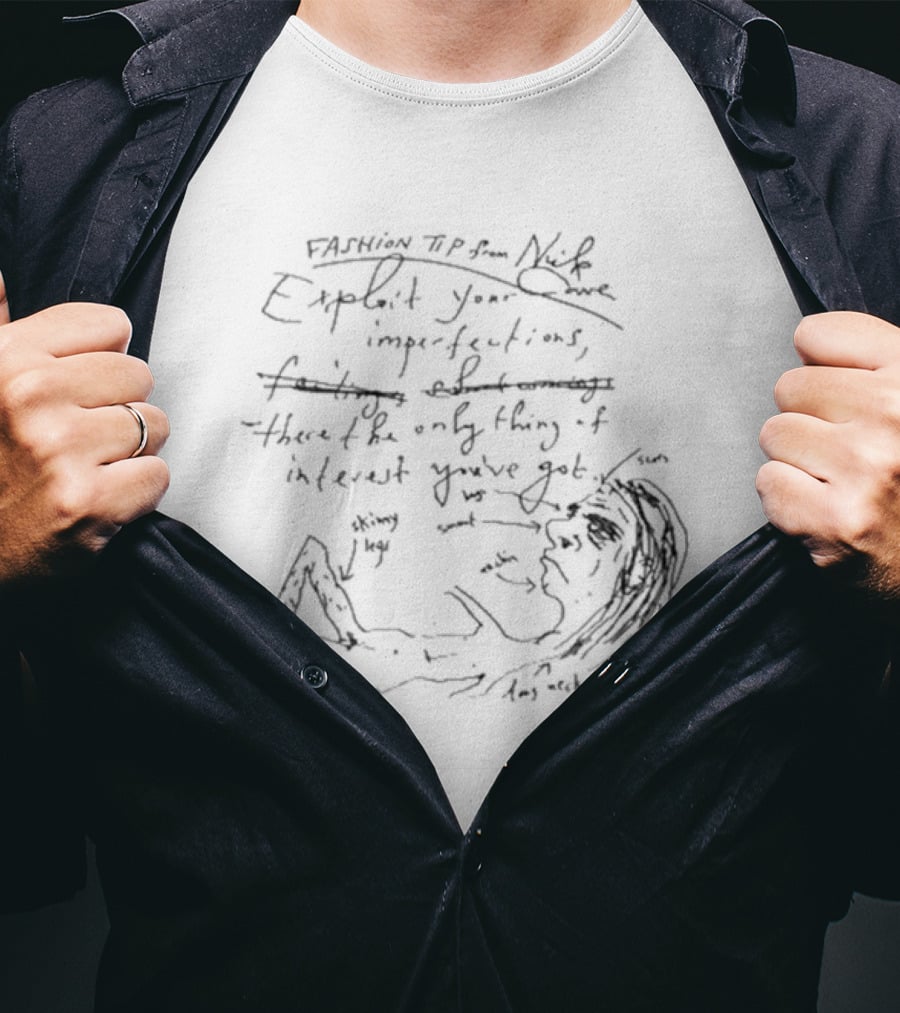 FASHION TIP from Nick Cave
Exploit your
imperfections,
failings shortcomings
- there the only thing of
interest you've got.
scar
skinny
legs
snout
long neck